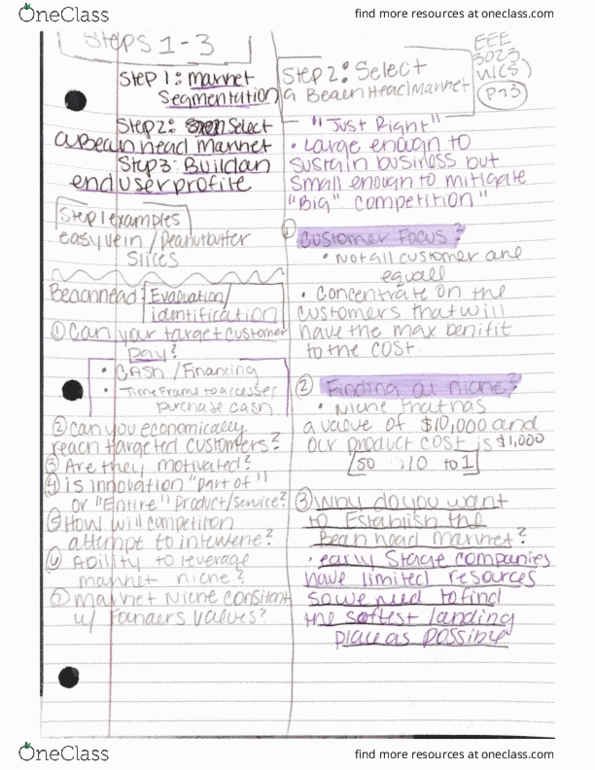 OneClass
find more resources at oneclass.com
Steps 1-3
Step 1: market
Segmentation
Step2: Select
a Beachhead Market
Step3: Build an
end user profile
Step 1 examples
easyvein / Peanutbutter
Slices
Beachhead: Evaluation/
identification
① Can your target customer
pay?
• CASH / Financing
• Time Frame to accesses
purchase cash
② can you economically
reach targeted customers?
③ Are they motivated?
④ is innovation "part of"
or "Entire" product/service?
⑤ How will competition
attempt to intervene?
⑥ Ability to leverage
market niche?
⑦ market Niche consitant
w/ Founders values?
Step 2: Select
a Beachhead Market
EEE
3023
WICS
P13
"Just Right"
• Large enough to
sustain business but
small enough to mitigate
"Big" competition"
① Customer Focus?
• Not all customer are
equall
• Concentrate on the
customers that will
have the max benifit
to the cost
② Finding a niche?
• Niche that has
a value of $10,000 and
our product cost is $1,000
so 10 to 1
③ Why do you want
to Establish the
Beachhead market?
• early Stage companies
have limited resources
so we need to find
the softest landing
place as possible
OneClass
find more resources at oneclass.com